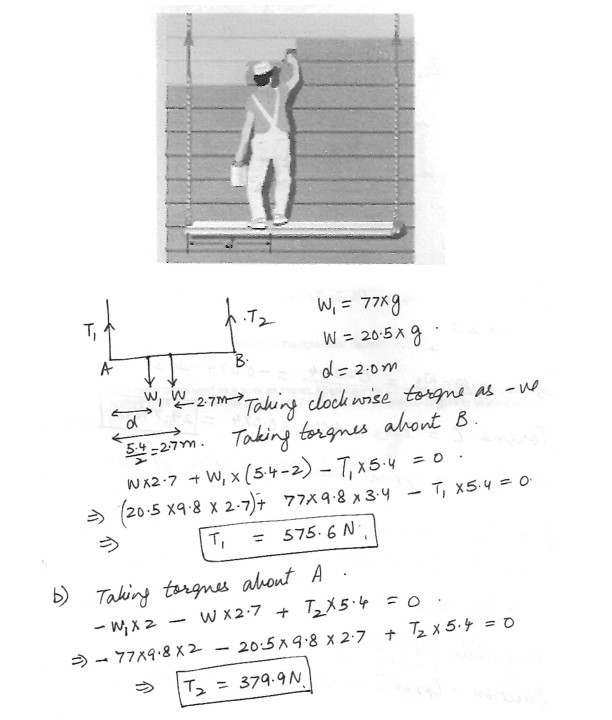 d
T₁
T₂
A
B.
W₁ W
d
2.7m
5.4/2 = 2.7m.
W₁ = 77×g
W = 20.5×g.
d = 2.0m
Taking clockwise torque as -ve
Taking torques about B.
W×2.7 + W₁×(5.4-2) - T₁×5.4 = 0.
⇒ (20.5×9.8×2.7)+ 77×9.8×3.4 - T₁×5.4 = 0
⇒ T₁ = 575.6 N.
b) Taking torques about A.
-W₁×2 - W×2.7 + T₂×5.4 = 0.
⇒ -77×9.8×2 - 20.5×9.8×2.7 + T₂×5.4 = 0
⇒ T₂ = 379.9N.